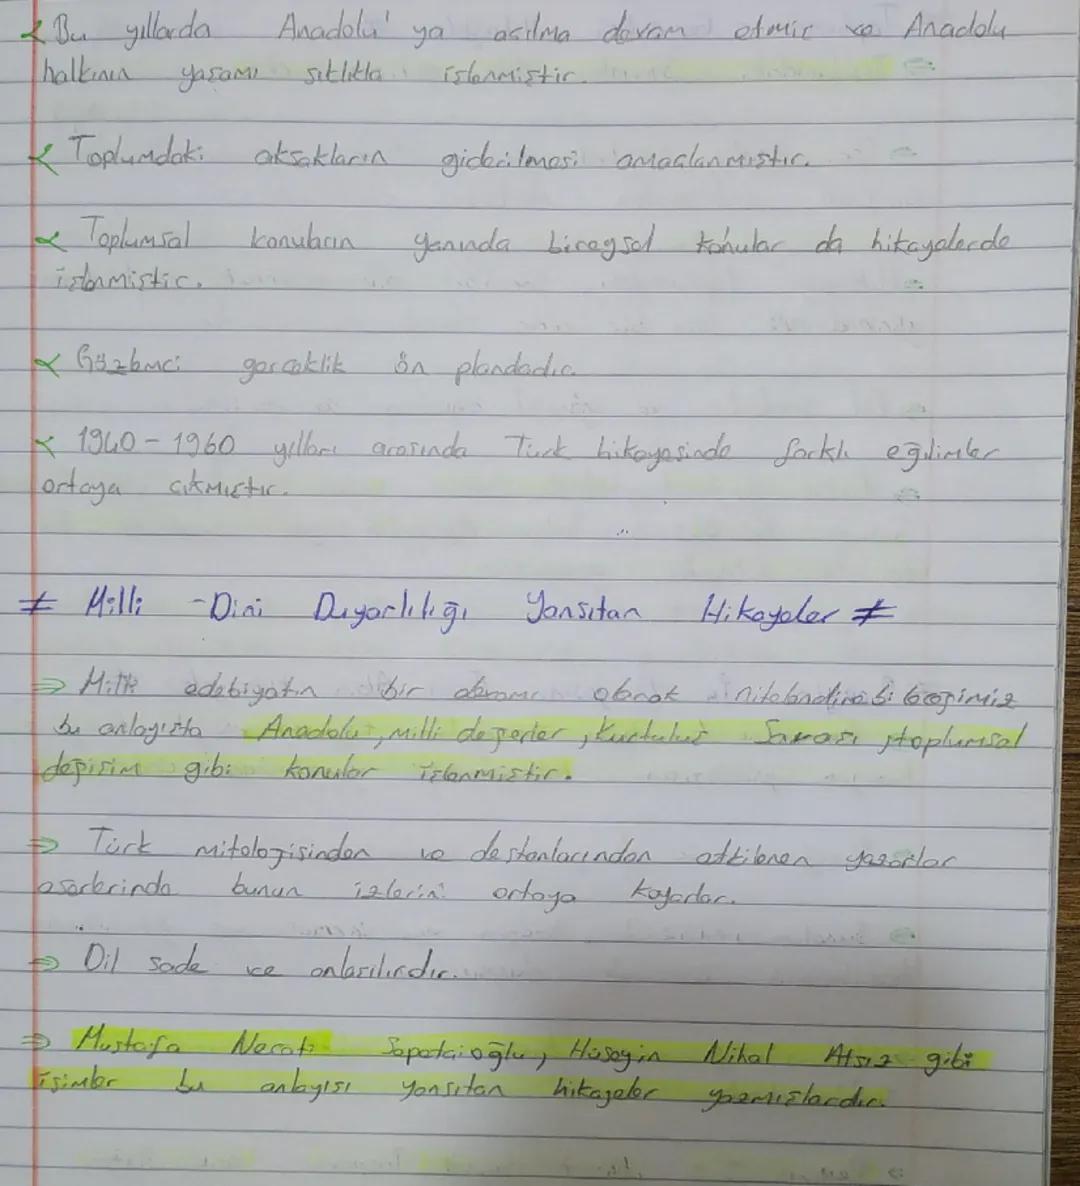 Bu yıllarda Anadolu'ya açılma devam etmiş ve Anadolu
halkının yaşamı sıklıkla işlenmiştir.
Toplumdaki aksakların giderilmesi amaçlanmıştır.
Toplumsal konuların yanında bireysel konular da hikayelerde
işlenmiştir.
Gözlemci gerçeklik ön plandadır.
1940-1960 yılları arasında Türk hikayesinde farklı eğilimler
ortaya çıkmıştır.
≠ Milli -Dini Duyarlılığı Yansıtan Hikayeler ≠
⇒ Milli edebiyatın bir devamı olarak nitelendirebileceğimiz
bu anlayışta Anadolu, milli değerler, Kurtuluş Savaşı, toplumsal
değişim gibi konular işlenmiştir.
⇒ Türk mitolojisinden ve destanlarından etkilenen yazarlar
eserlerinde bunun izlerini ortaya koyarlar.
⇒ Dil sade ve anlaşılırdır.
⇒ Mustafa Necati Sepetçioğlu, Hüseyin Nihal Atsız gibi
isimler bu anlayışı yansıtan hikayeler yazmışlardır.